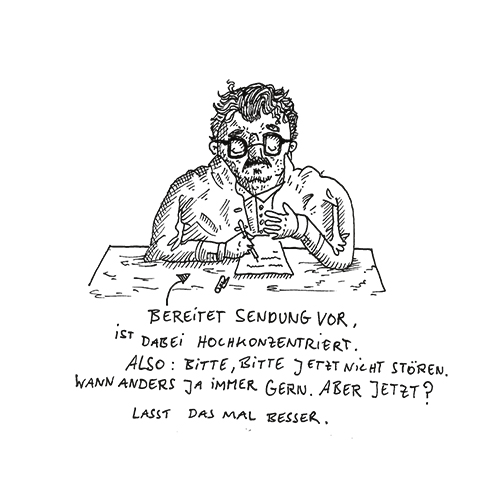 BEREITET SENDUNG VOR,
IST DABEI HOCHKONZENTRIERT.
ALSO: BITTE, BITTE JETZT NICHT STÖREN.
WANN ANDERS JA IMMER GERN. ABER JETZT?
LASST DAS MAL BESSER.